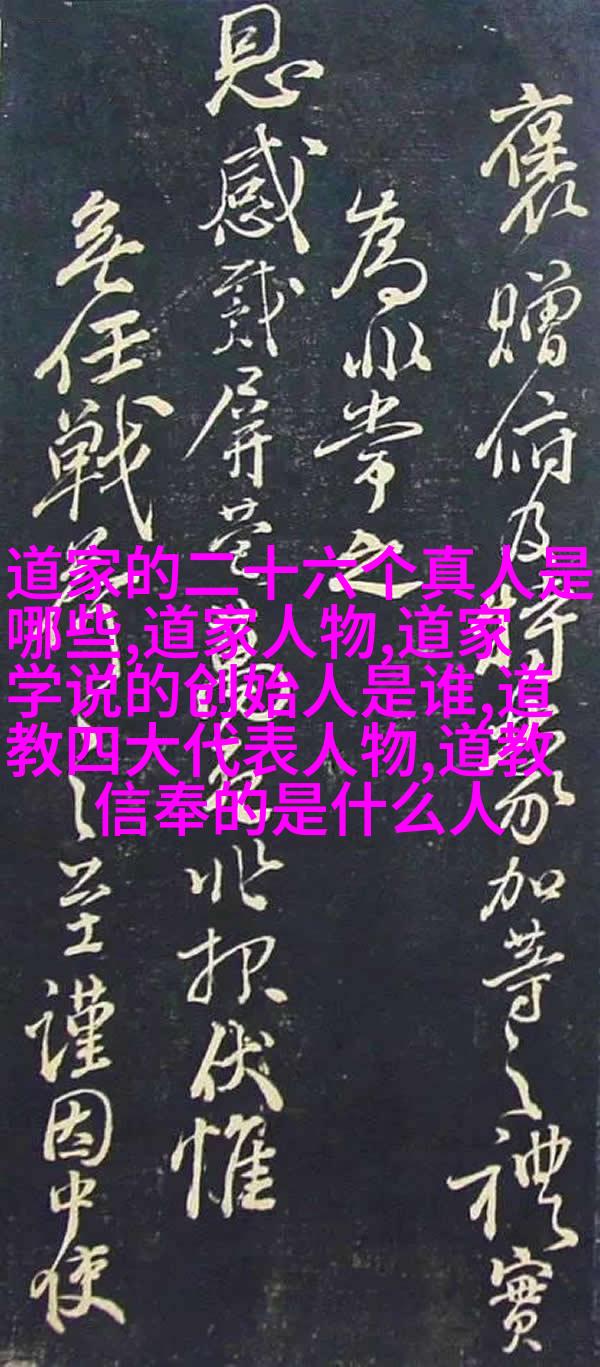 道家的二十六个真人是
哪些,道家人物,道家
学说的创始人是谁,道
教四大代表人物,道教
信奉的是什么人
褒贈俯及特蒙加等之禮實
為非常之
恩感戴屏營伏惟
無任戰之至謹因中使